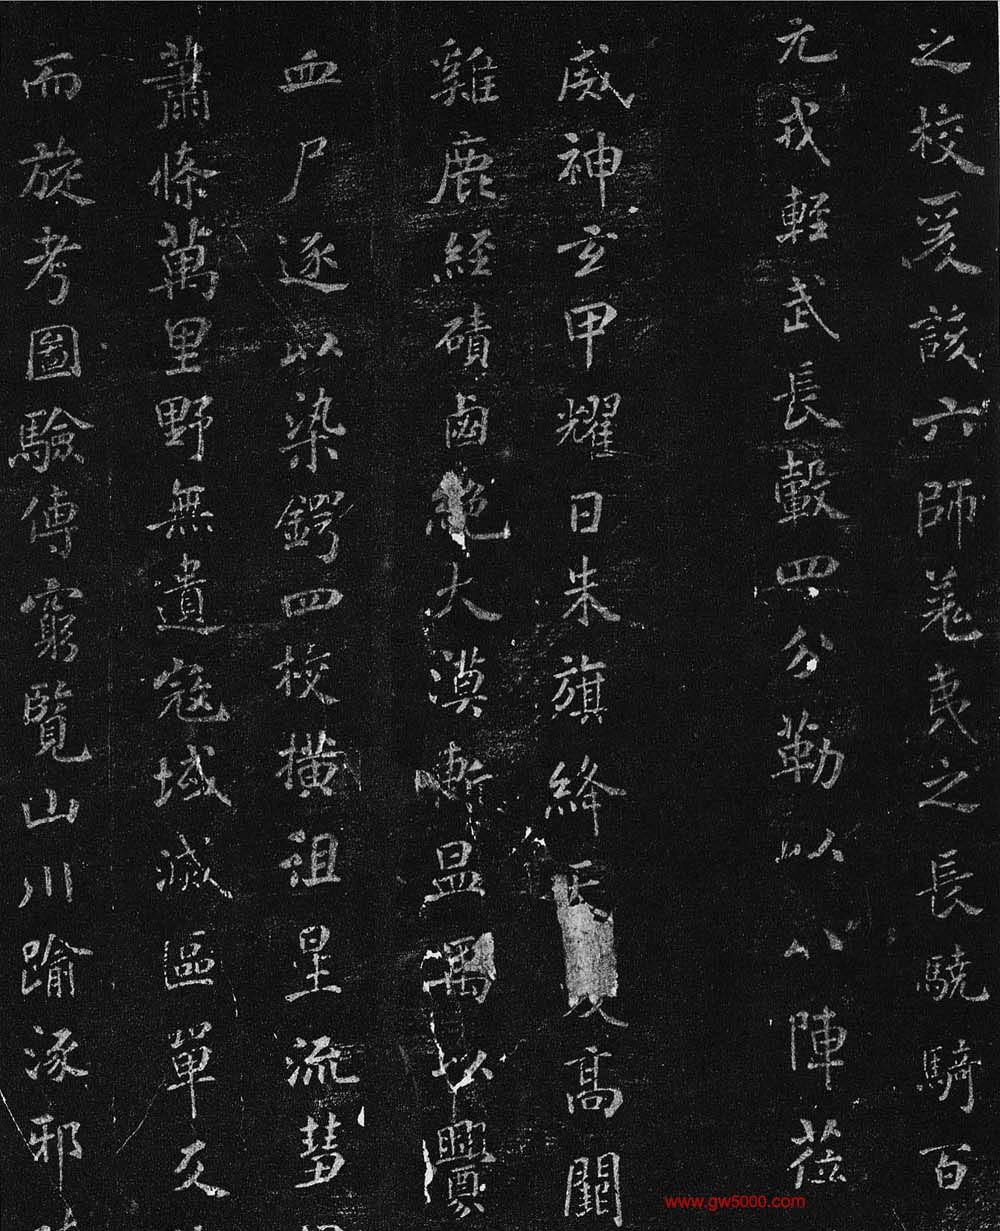 之校爰該六師羌夷之長驍騎百
元戎輕武長轂四分勒以八陣莅
威神玄甲耀日朱旗絳天高闕
雞鹿經磧鹵絕大漠斬昷禺以釁
血尸逐以染鍔四校橫徂星流彗
蕭條萬里野無遺寇域滅區單反
而旋考圖驗傳窮覽山川踰涿邪
www.gw5000.com